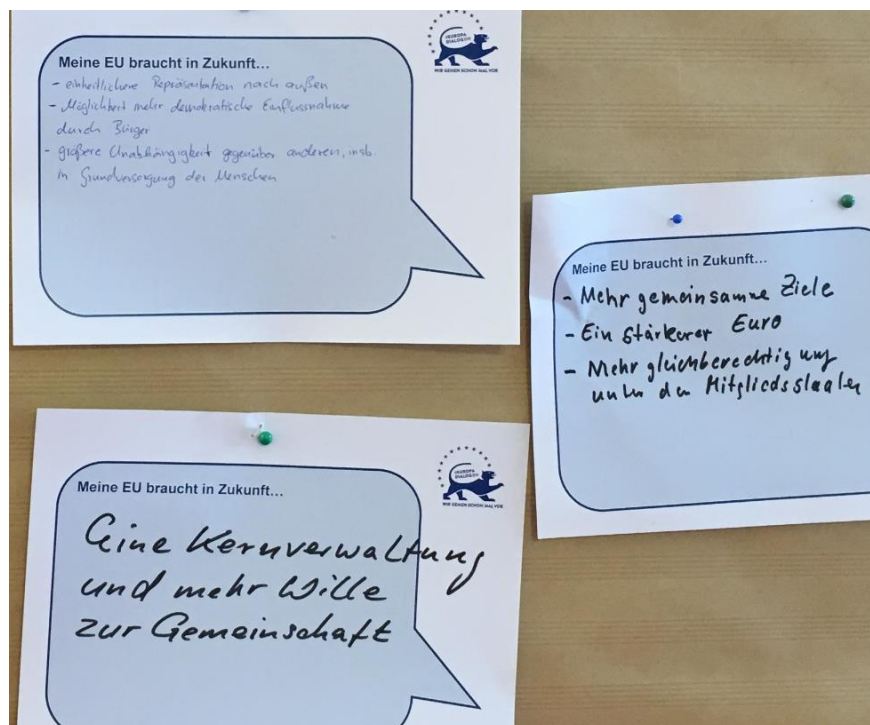 Meine EU braucht in Zukunft...
- einheitlichere Repräsentation nach außen
- Möglichkeit mehr demokratische Einflussnahme
durch Bürger
- größere Unabhängigkeit gegenüber anderen, insb.
in Grundversorgung der Menschen
#EUROPA
DIALOG
WIR GEHEN SCHON MAL VOR
Meine EU braucht in Zukunft...
- Mehr gemeinsamme Ziele
- Ein stärkerer Euro
- Mehr gleichberechtigung
unter den Mitgliedsstaaten
Meine EU braucht in Zukunft...
Eine Kernverwaltung
und mehr Wille
zur Gemeinschaft
#EUROPA
DIALOG
WIR GEHEN SCHON MAL VOR